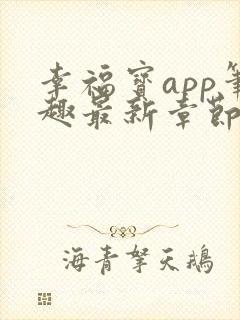 幸福宝app笔
趣最新章节
海青拏天鹅